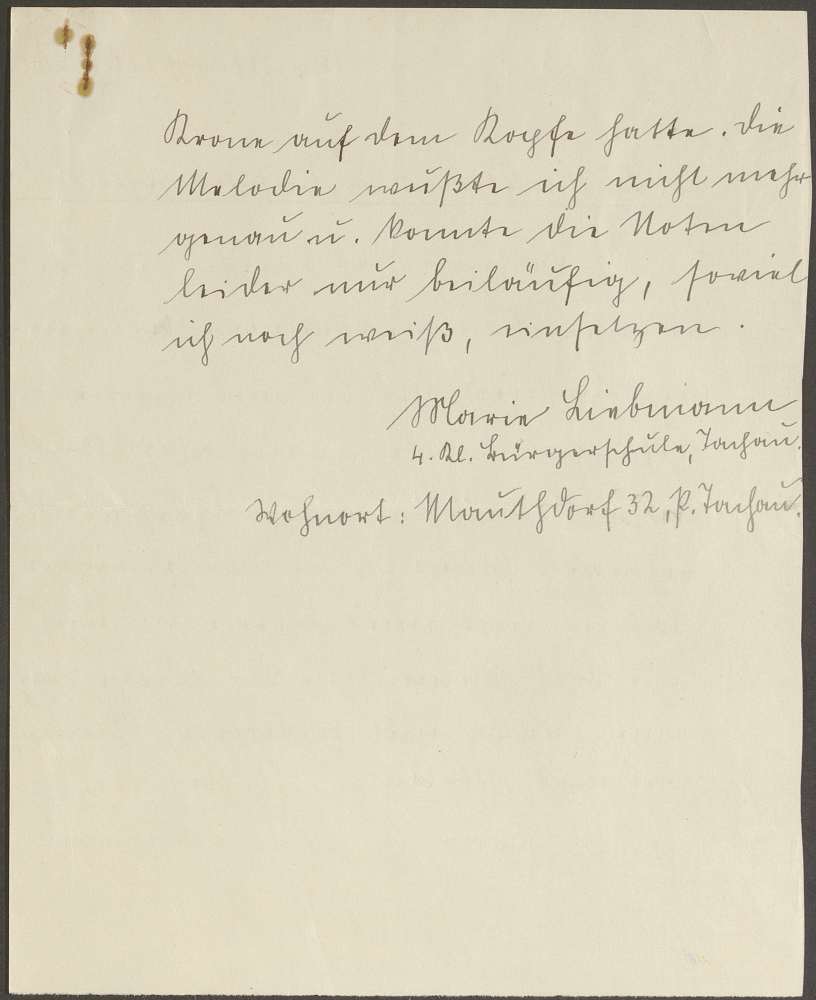 Krone auf dem Kopfe hatte. Die
Melodie wußte ich nicht mehr
genau u. konnte die Noten
leider nur beiläufig, soviel
ich noch weiß, einsetzen.
Marie Liebmann
4. Kl. Bürgerschule, Tachau.
Wohnort: Mauthdorf 32, P. Tachau.